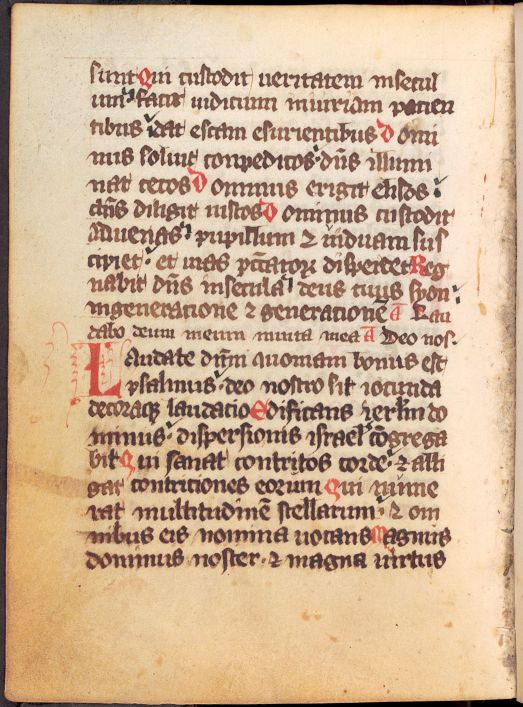 sunt Qui custodit ueritatem insecul
um facit iudicium iniuriam pacien
tibus dat escam esurientibus D omi
nus soluit conpeditos dn̄s illumi
nat cecos D ominus erigit elisos
dn̄s diligit iustos D ominus custodit
aduenas pupillum ⁊ uiduam sus
cipiet et uias pccatoꝝ disperdet Reg
nabit dn̄s insecula deus tuus syon
ingeneratione ⁊ generationē A Lau
dabo deum meum inuita mea A Deo nos
Laudate dn̄m quoniam bonus est
psalmus deo nostro sit iocunda
decoraqꝫ laudacio Edificans ierl̄m do
minus dispersionis israel cōgrega
bit Qui sanat contritos corde ⁊ alli
gat contriciones eorum Qui nume
rat multitudinē stellarum ⁊ om
nibus eis nomina uocans Magnus
dominus noster ⁊ magna uirtus